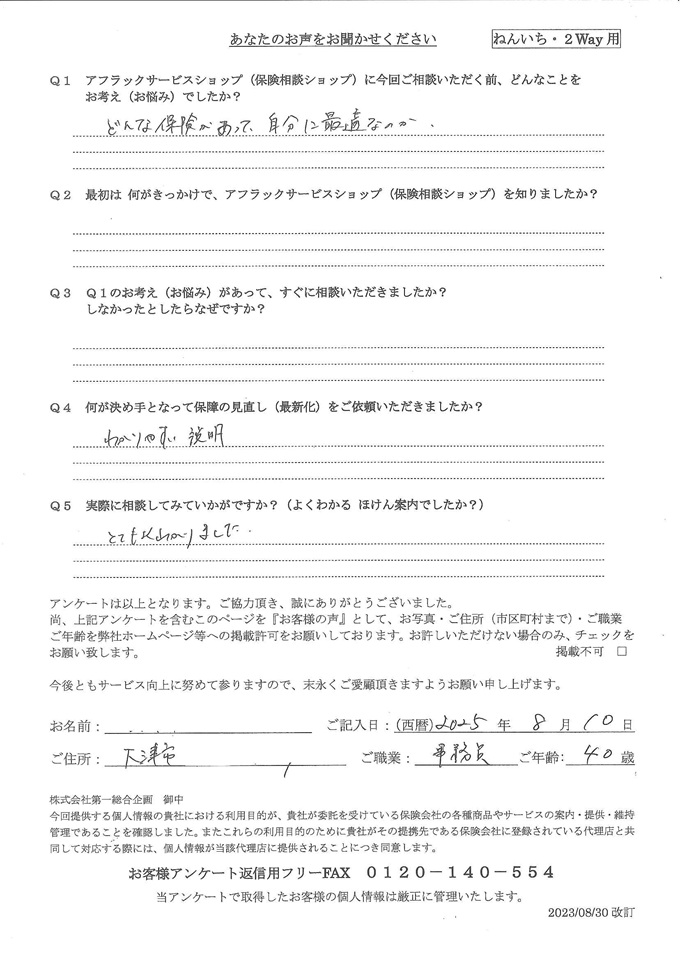 あなたのお声をお聞かせください
ねんいち・2Way用
Q1 アフラックサービスショップ（保険相談ショップ）に今回ご相談いただく前、どんなことを
お考え（お悩み）でしたか？
どんな保険があって、自分に最適なのか.
Q2 最初は 何がきっかけで、アフラックサービスショップ（保険相談ショップ）を知りましたか？
Q3 Q1のお考え（お悩み）があって、すぐに相談いただきましたか？
しなかったとしたらなぜですか？
Q4 何が決め手となって保障の見直し（最新化）をご依頼いただきましたか？
わかりやすい 説明
Q5 実際に相談してみていかがですか？（よくわかる ほけん案内でしたか？）
とてもよくわかりました.
アンケートは以上となります。ご協力頂き、誠にありがとうございました。
尚、上記アンケートを含むこのページを『お客様の声』として、お写真・ご住所（市区町村まで）・ご職業
ご年齢を弊社ホームページ等への掲載許可をお願いしております。お許しいただけない場合のみ、チェックを
お願い致します。 掲載不可 □
今後ともサービス向上に努めて参りますので、末永くご愛顧頂きますようお願い申し上げます。
お名前： ご記入日：(西暦)2025 年 8 月 10 日
ご住所： 大津市 ご職業： 事務員 ご年齢: 40 歳
株式会社第一総合企画 御中
今回提供する個人情報の貴社における利用目的が、貴社が委託を受けている保険会社の各種商品やサービスの案内・提供・維持
管理であることを確認しました。またこれらの利用目的のために貴社がその提携先である保険会社に登録されている代理店と共
同して対応する際には、個人情報が当該代理店に提供されることにつき同意します。
お客様アンケート返信用フリーFAX 0120－140－554
当アンケートで取得したお客様の個人情報は厳正に管理いたします。
2023/08/30 改訂